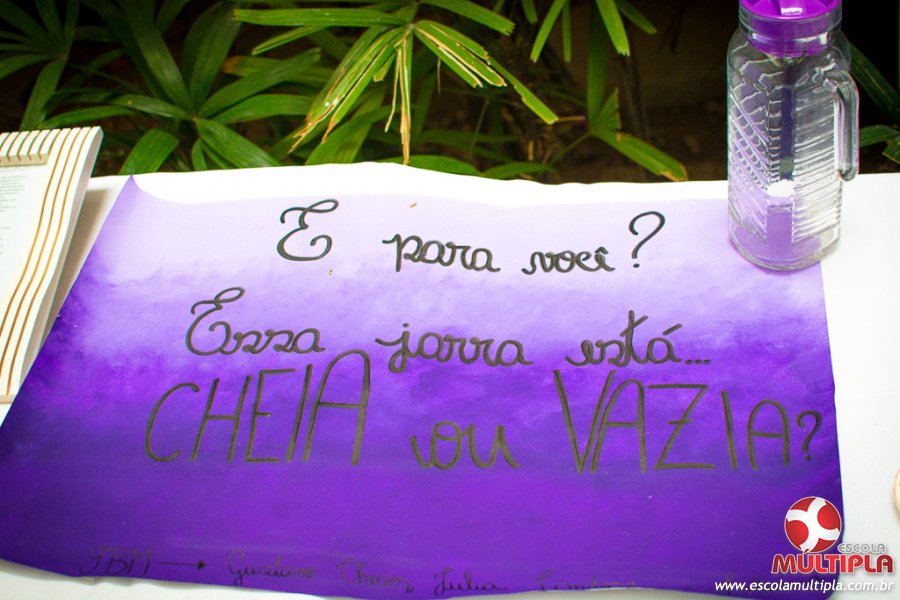 E para você?
Essa jarra está...
CHEIA ou VAZIA?
Gustavo
ESCOLA
MULTIPLA
www.escolamultipla.com.br